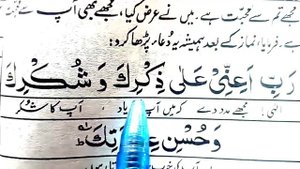 مجھے تم سے محبت ہے۔ میں نے عرض کیا، مجھے بھی آپ سے
ہے۔ فرمایا، نماز کے بعد ہمیشہ یہ دعا پڑھا کرو:
رَبِّ اَعِنِّیْ عَلٰی ذِکْرِكَ وَ شُکْرِكَ
الٰہی! مجھے مدد دے کہ میں آپ یاد، آپ کا شکر
وَ حُسْنِ